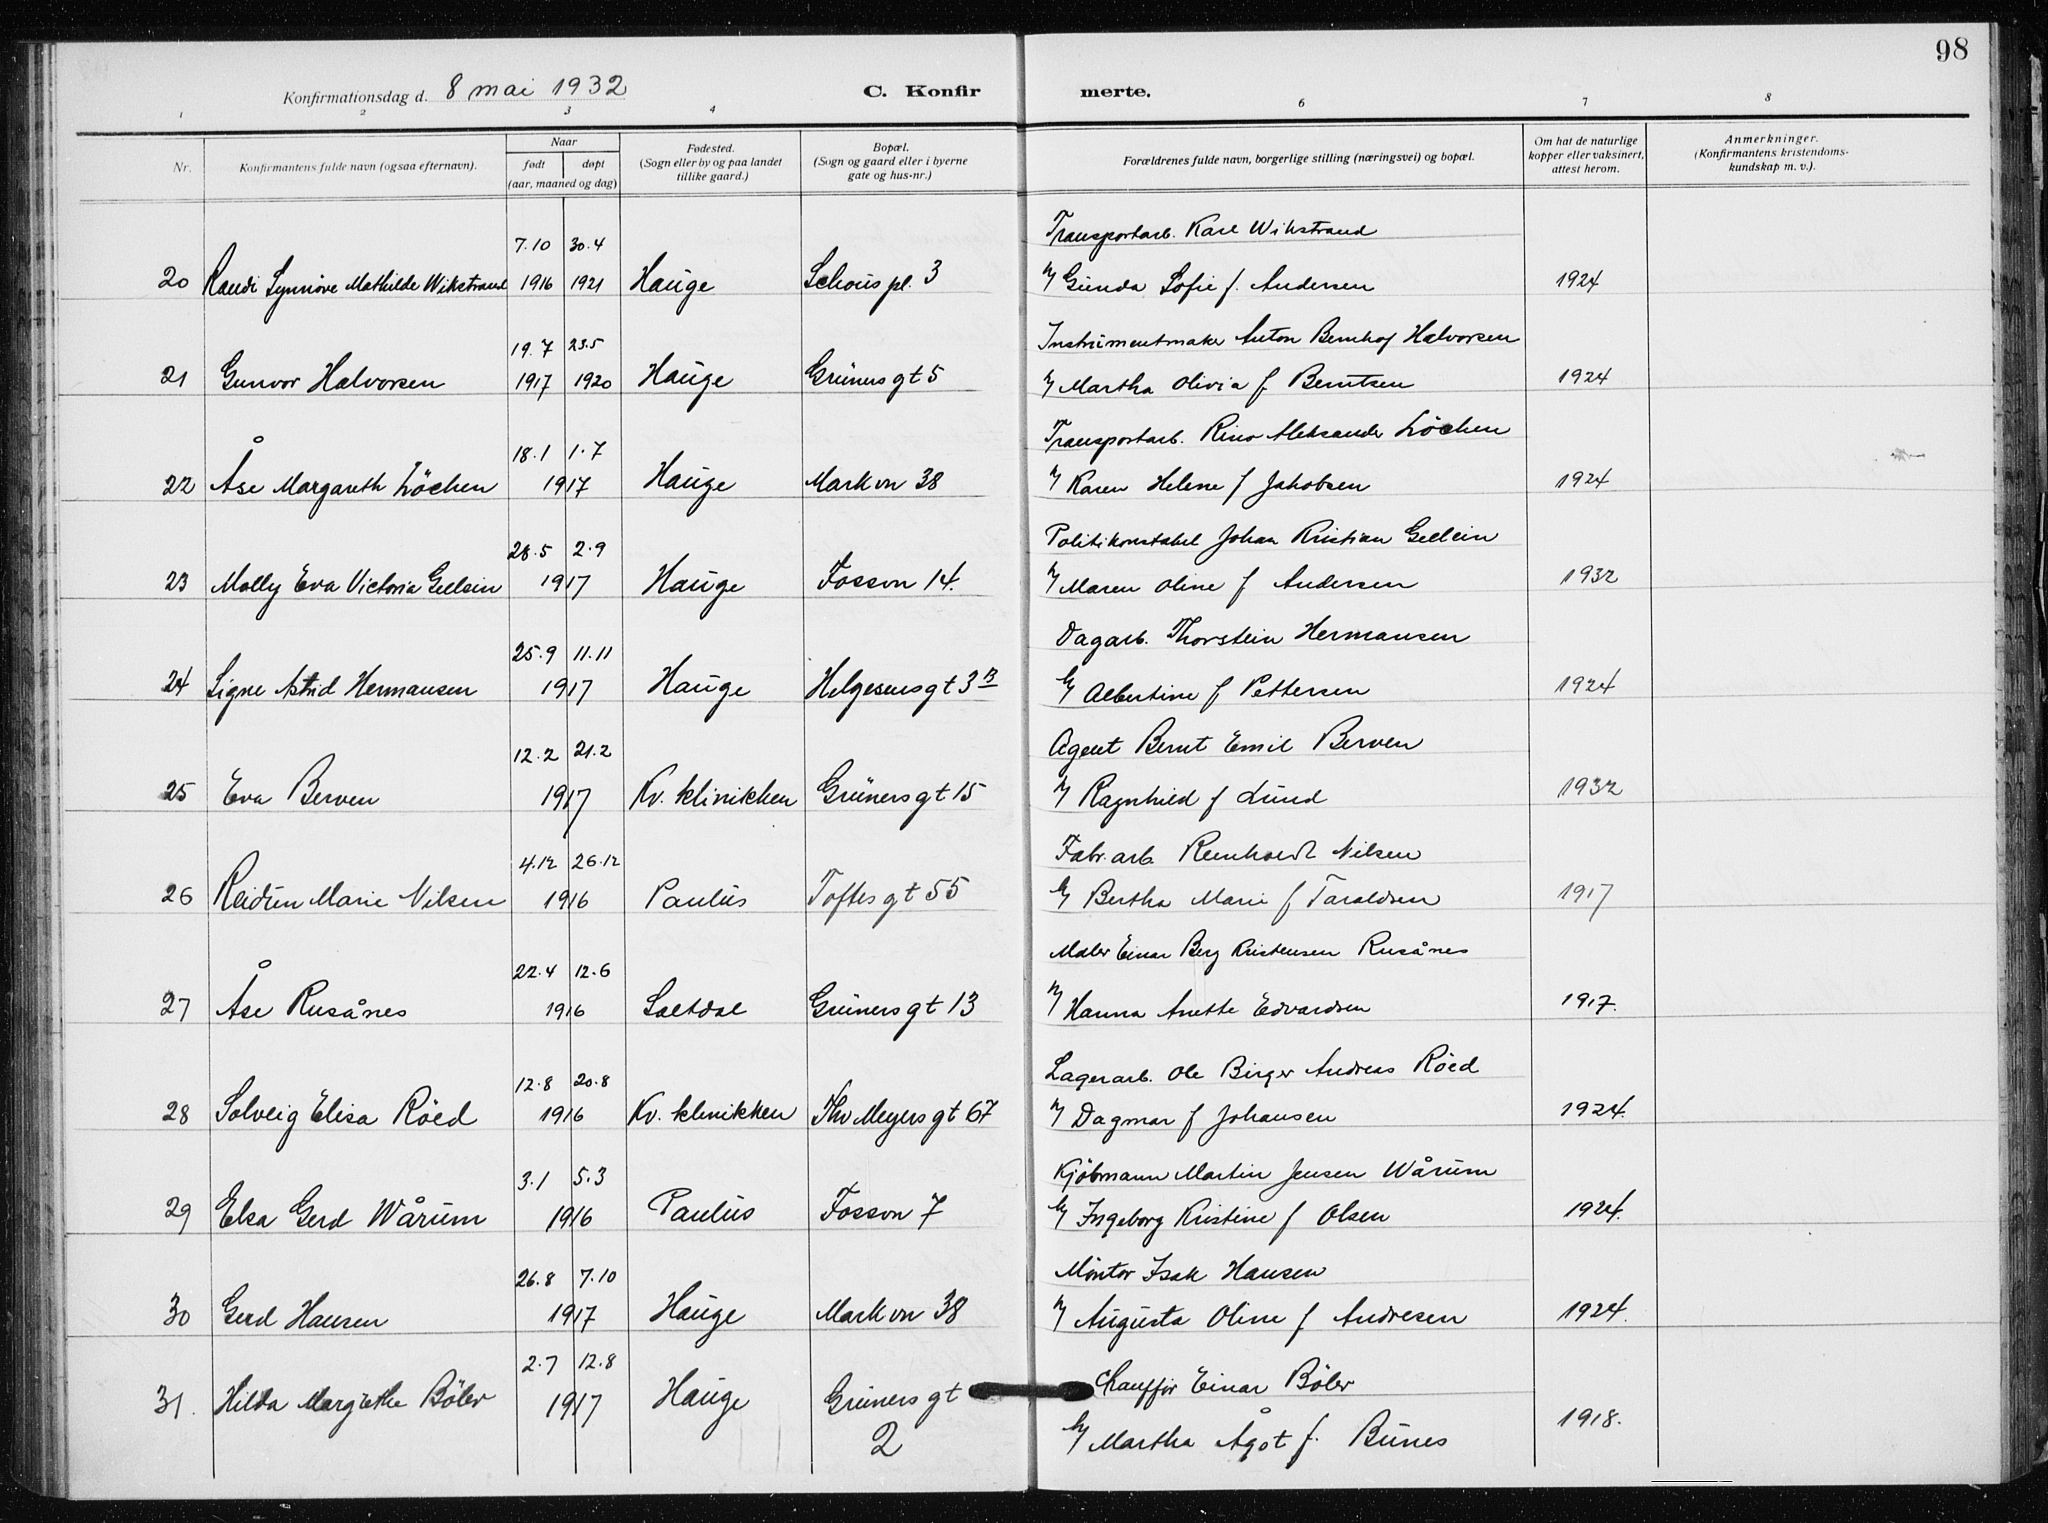 98
Konfirmationsdag d. 8 mai 1932
C. Konfirmerte.
1 2 3 4 6 7 8
Nr. Konfirmantens fulde navn (ogsaa efternavn). Naar født døpt (aar, maaned og dag) Fødested. (Sogn eller by og paa landet tillike gaard.) Bopæl. (Sogn og gaard eller i byerne gate og hus-nr.) Forældrenes fulde navn, borgerlige stilling (næringsvei) og bopæl. Om hat de naturlige kopper eller vaksinert, attest herom. Anmerkninger. (Konfirmantens kristendomskundskap m. v.).
7.10 30.4 Transportarb. Karl Wikstrand
20 Randi Synnöve Mathilde Wikstrand 1916 1921 Hauge Schous pl. 3 Gunda Sofie f. Andersen 1924
19.7 23.5 Instrumentmaker Anton Bernhof Halvorsen
21 Gunvor Halvorsen 1917 1920 Hauge Grüners gt 5 Martha Olivia f Berntsen 1924
18.1 1.7 Transportarb. Rino Aleksander Löchen
22 Åse Margareth Löchen 1917 Hauge Mark vn 38 Karen Helene f Jakobsen 1924
28.5 2.9 Politikonstabel Johan Kristian Gellein
23 Molly Eva Victoria Gellein 1917 Hauge Fossvn 14. Maren Oline f Andersen 1932
25.9 11.11 Dagarb. Thorstein Hermansen
24 Signe Astrid Hermansen 1917 Hauge Helgesens gt 3B Albertine f Pettersen 1924
12.2 21.2 Agent Bernt Emil Berven
25 Eva Berven 1917 Kv. klinikken Grüners gt 15 Ragnhild f Lund 1932
4.12 26.12 Fabr.arb. Reinholdt Nilsen
26 Reidun Marie Nilsen 1916 Paulus Toftes gt 55 Bertha Marie f Taraldsen 1917
22.4 12.6 Maler Einar Berg Kristensen Rusånes
27 Åse Rusånes 1916 Saltdal Grüners gt 13 Hanna Anette Edvardsen 1917.
12.8 20.8 Lagerarb. Ole Birger Andreas Röed
28 Solveig Elisa Röed 1916 Kv. klinikken Thv Meyers gt 67 Dagmar f Johansen 1924.
3.1 5.3 Kjöbmann Martin Jensen Wårum
29 Elsa Gerd Wårum 1916 Paulus Fossvn 7 Ingeborg Kristine f Olsen 1924.
26.8 7.10 Montör Isak Hansen
30 Gerd Hansen 1917 Hauge Mark vn 38 Augusta Oline f Andresen 1924.
2.7 12.8 Chaufför Einar Böler
31. Hilda Margrethe Böler 1917 Hauge Grüners gt 2 Martha Ågot f. Bunes 1918.